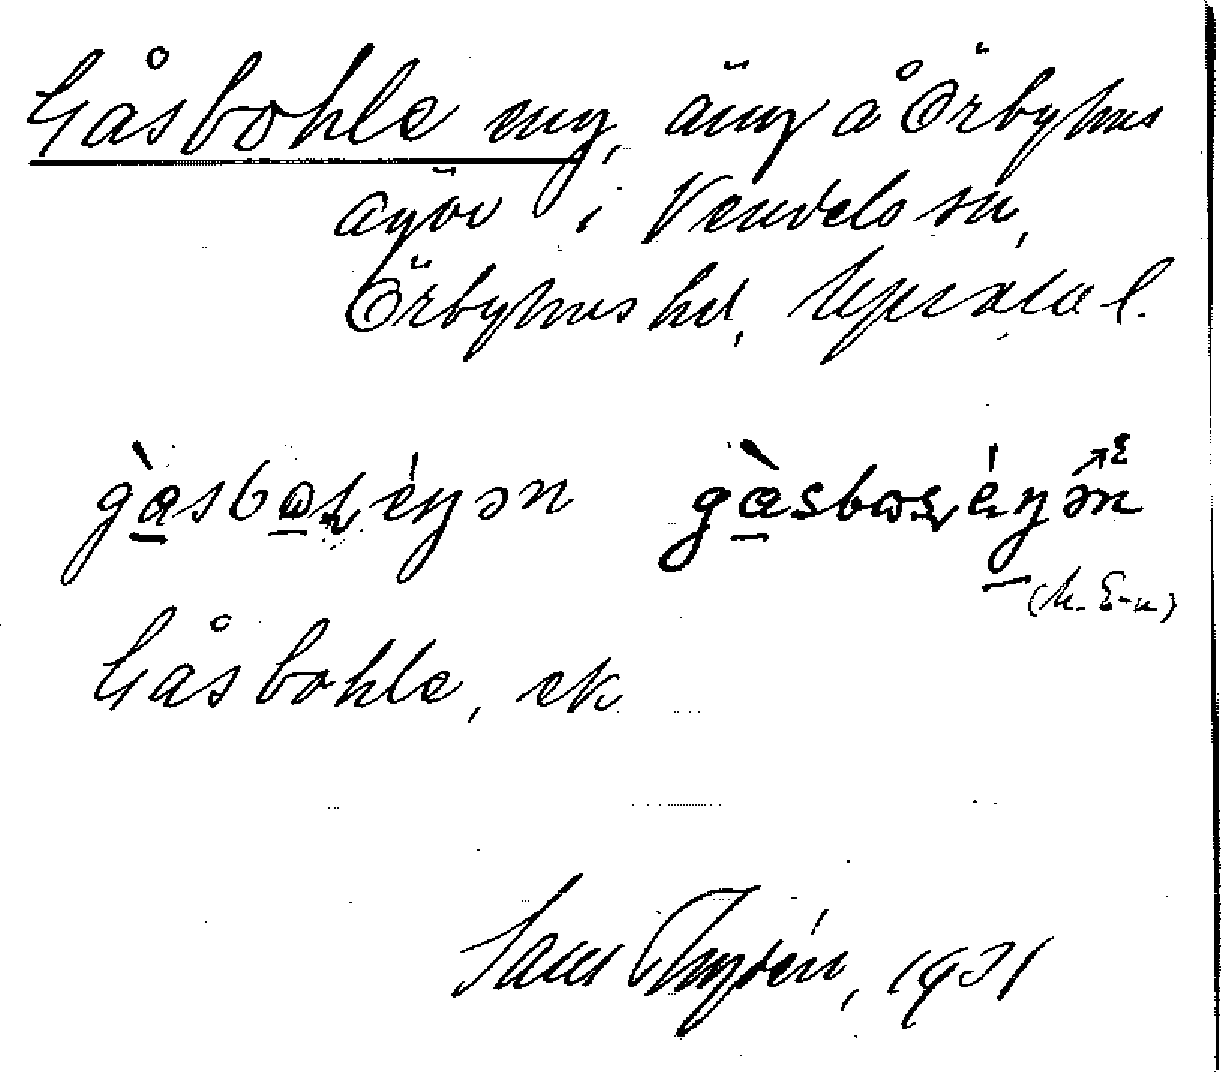 Gåsbohle äng, äng å Örbyhus
ägor i Vendels sn,
Örbyhus hd, Upsala l.
gàsboɽéŋən gàsboɽéŋən
(M. E-n)
Gåsbohle, ek
Sam Thysén, 1931